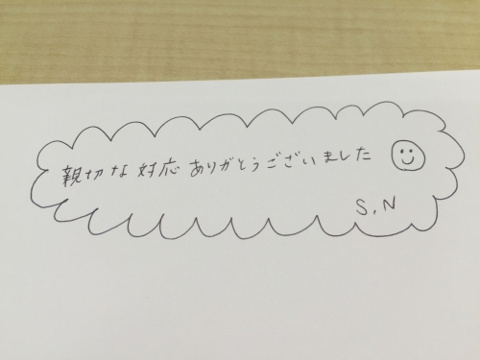 親切な対応ありがとうございました
S,N